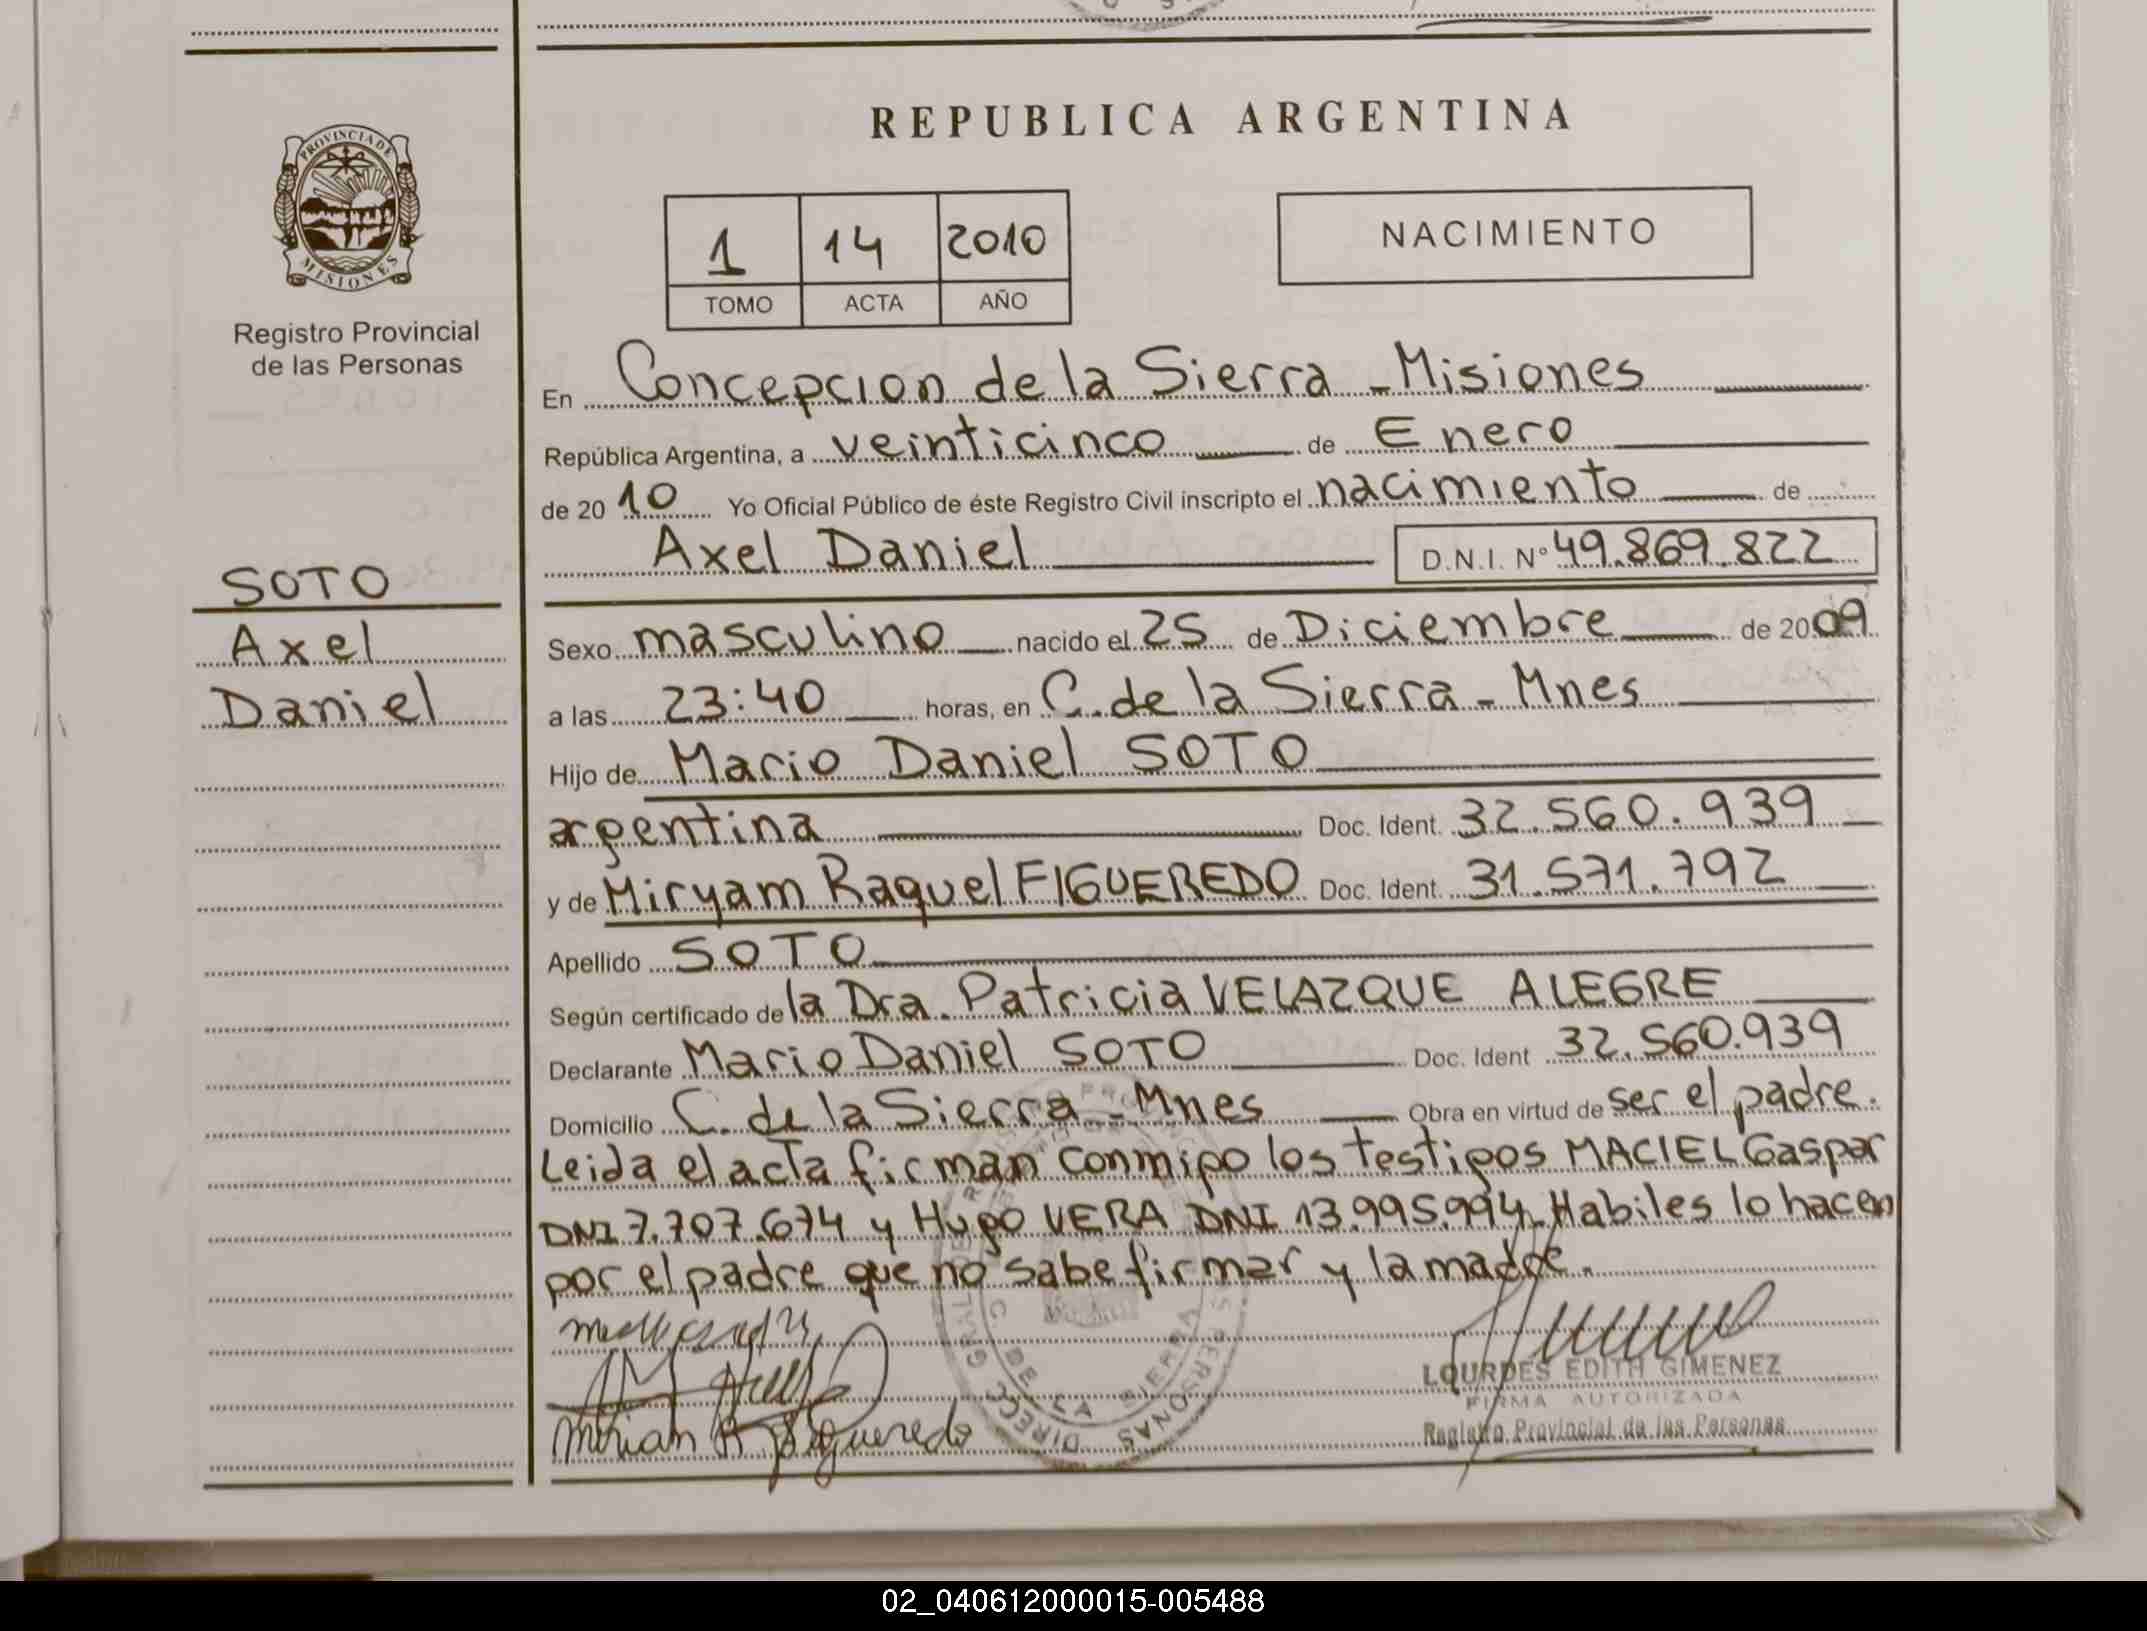 REPUBLICA ARGENTINA
PROVINCIA DE MISIONES
Registro Provincial
de las Personas
1 14 2010
TOMO ACTA AÑO
NACIMIENTO
SOTO
Axel
Daniel
En Concepcion de la Sierra - Misiones
República Argentina, a veinticinco de Enero
de 2010 Yo Oficial Público de éste Registro Civil inscripto el nacimiento de
Axel Daniel D.N.I. Nº 49.869.822
Sexo masculino nacido el 25 de Diciembre de 2009
a las 23:40 horas, en C. de la Sierra - Mnes
Hijo de Mario Daniel SOTO
argentina Doc. Ident. 32.560.939
y de Miryam Raquel FIGUEREDO Doc. Ident. 31.571.792
Apellido SOTO
Según certificado de la Dra. Patricia VELAZQUE ALEGRE
Declarante Mario Daniel SOTO Doc. Ident 32.560.939
Domicilio C. de la Sierra - Mnes Obra en virtud de ser el padre.
Leida el acta firman conmigo los testigos MACIEL Gaspar
DNI 7.707.674 y Hugo VERA DNI 13.995.994. Habiles lo hacen
por el padre que no sabe firmar y la madre.
Mirian R Figueredo
LOURDES EDITH GIMENEZ
FIRMA AUTORIZADA
Registro Provincial de las Personas
C. DE LA SIERRA
02_040612000015-005488